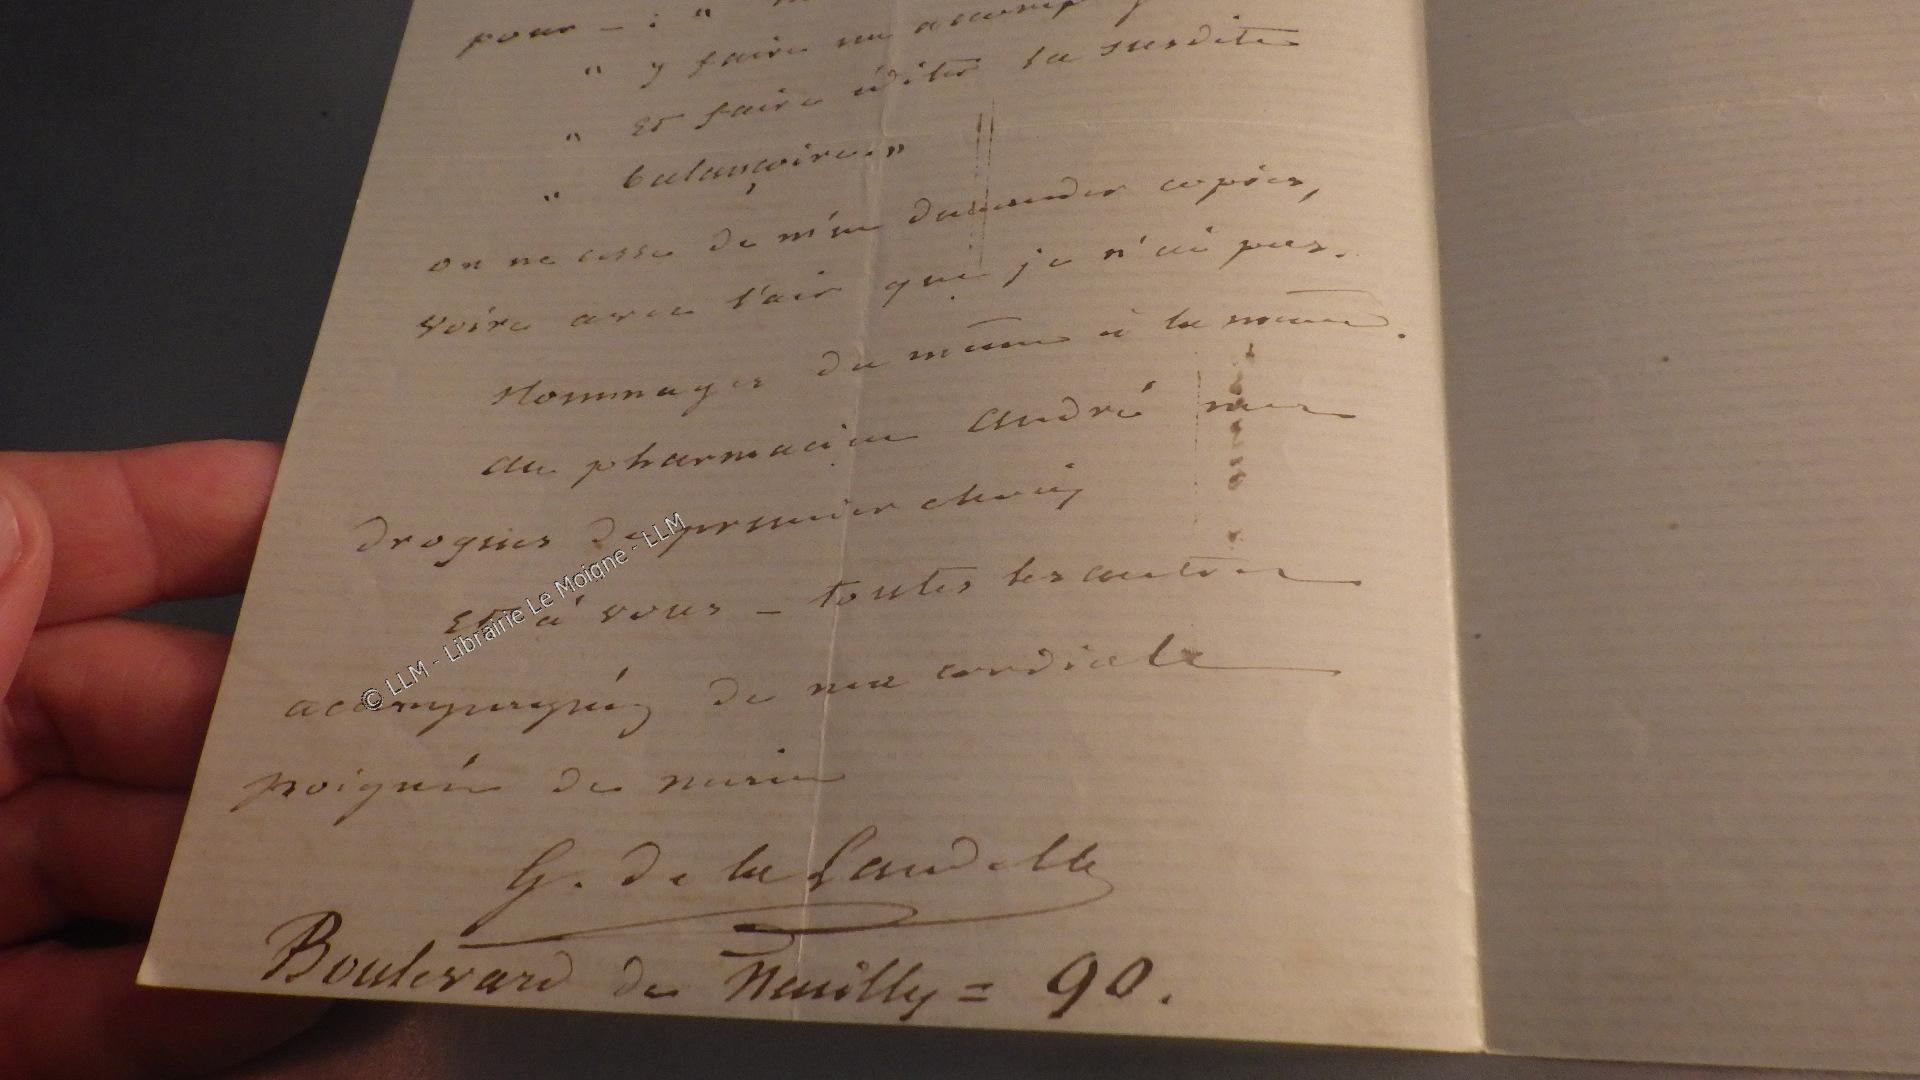 pour – : "
" y faire un accomp
" Et faire éditer la susdite
" balançoire."
on ne cesse de m'en demander copies,
voire avec l'air que je n'ai pas.
Hommages du même à la même.
au pharmacien André mes
drogues de premier choix
Et à vous – toutes les autres
accompagnées de ma cordiale
poignée de main
G. de la Landelle
Boulevard de Neuilly = 90.
© LLM - Librairie Le Moigne - LLM